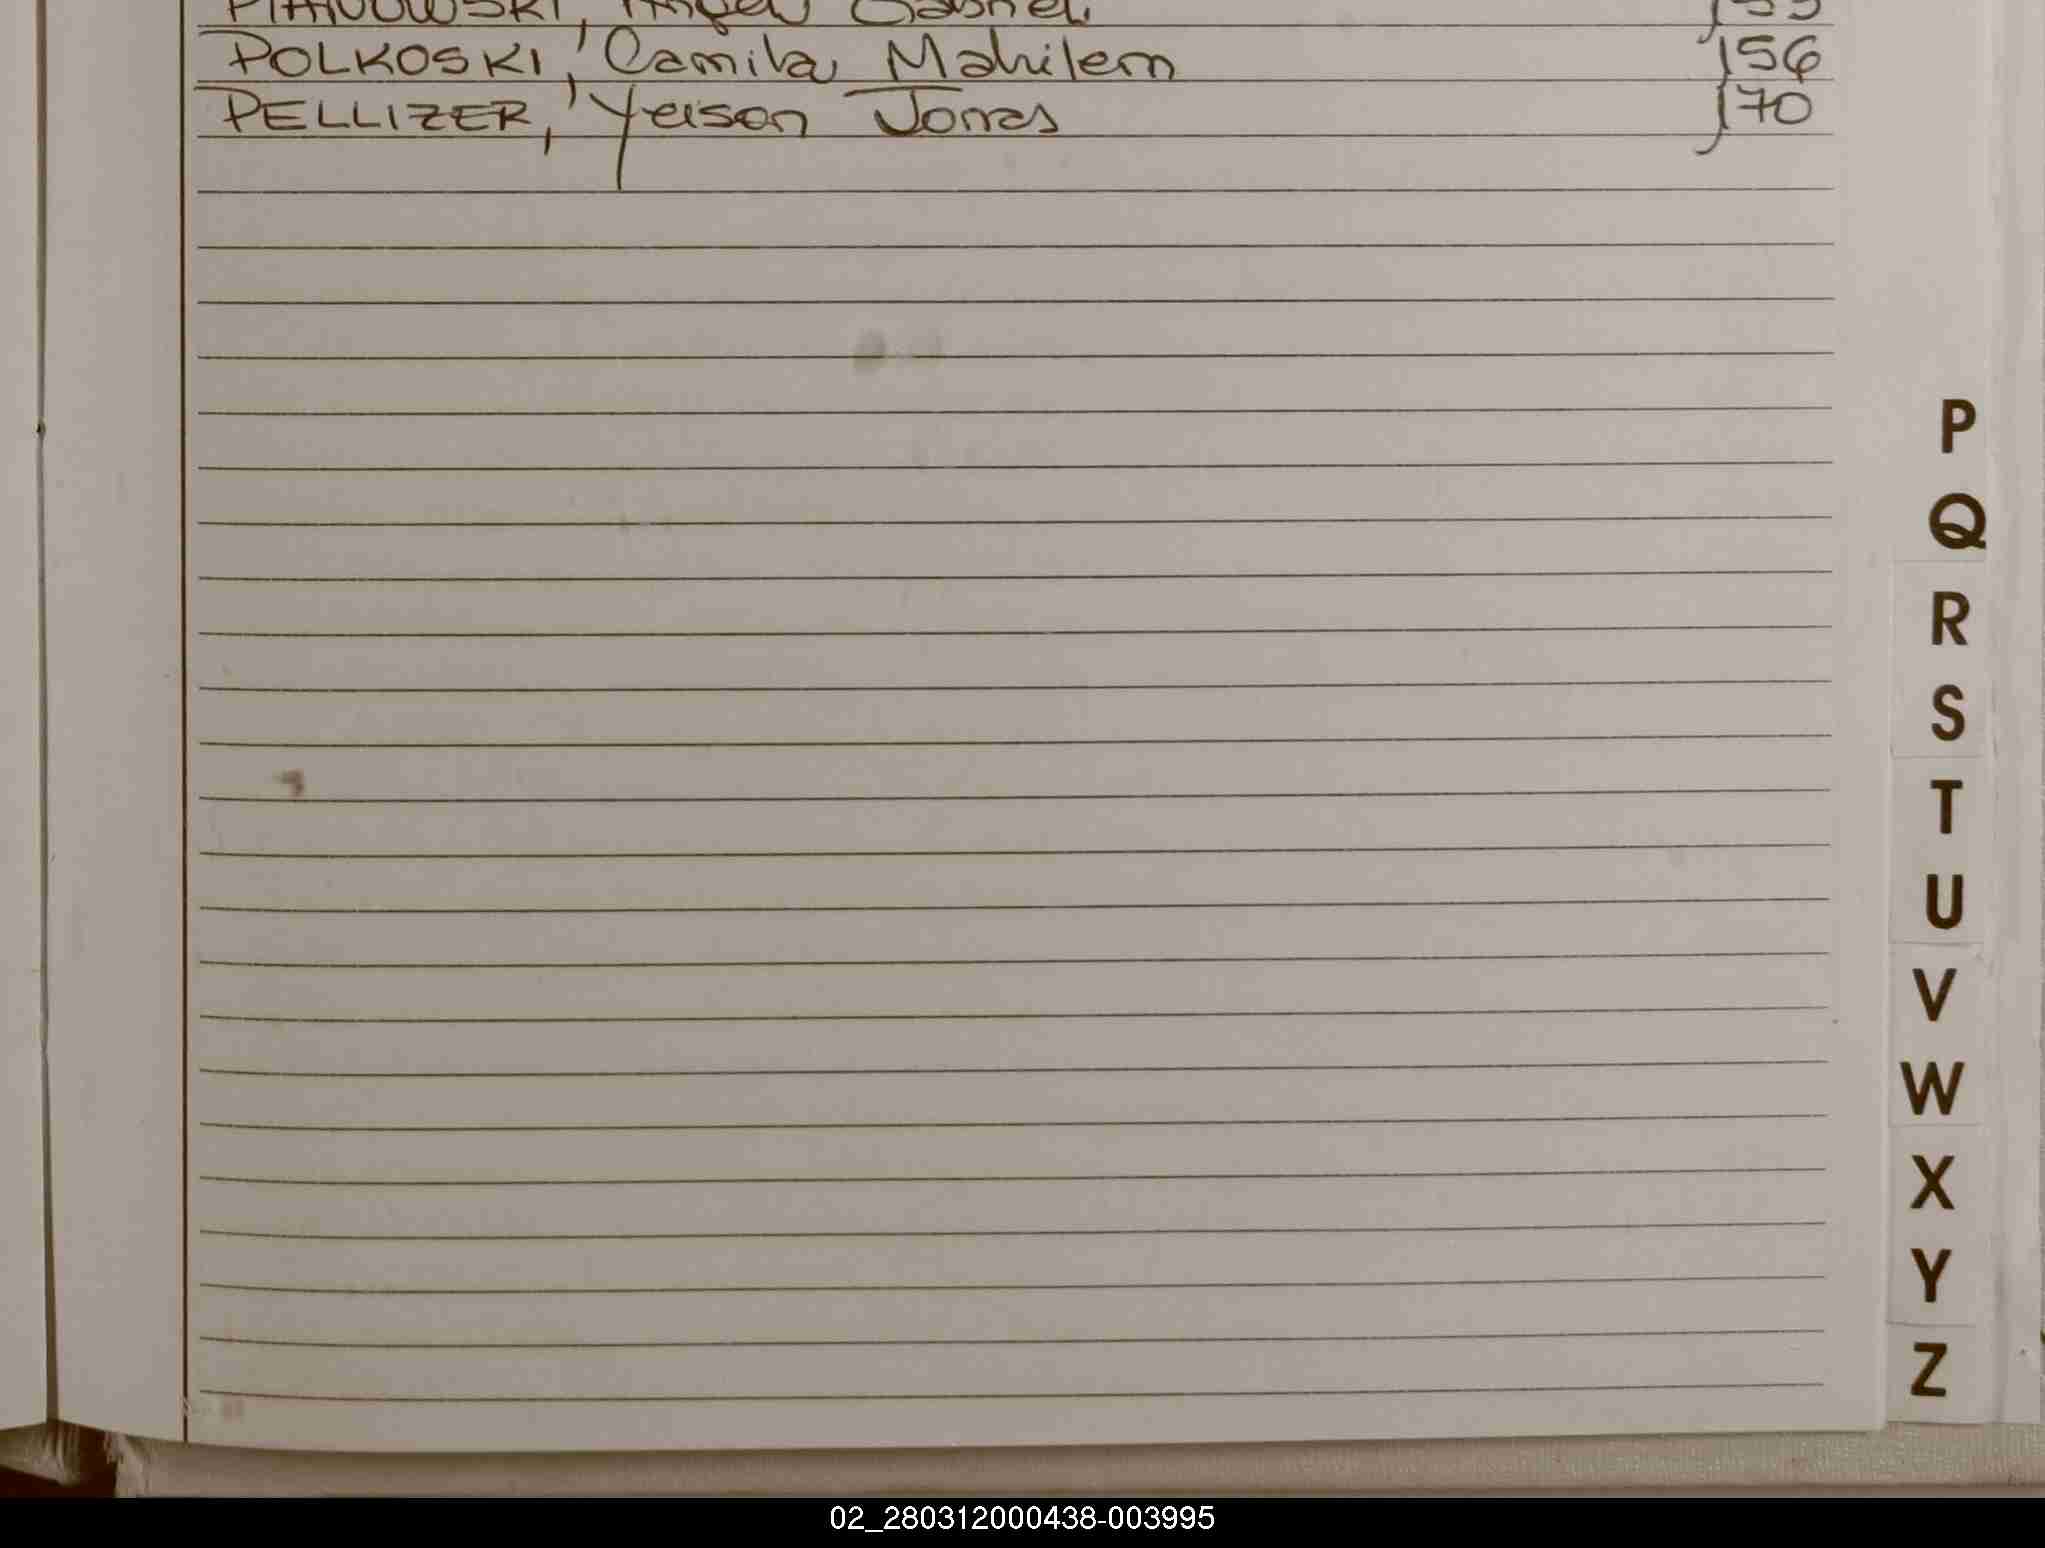 PIANOWSKI, Angel Gabriel. 155
POLKOSKI, Camila Mahilem 156
PELLIZER, Yeison Jonas 170
P
Q
R
S
T
U
V
W
X
Y
Z
02_280312000438-003995